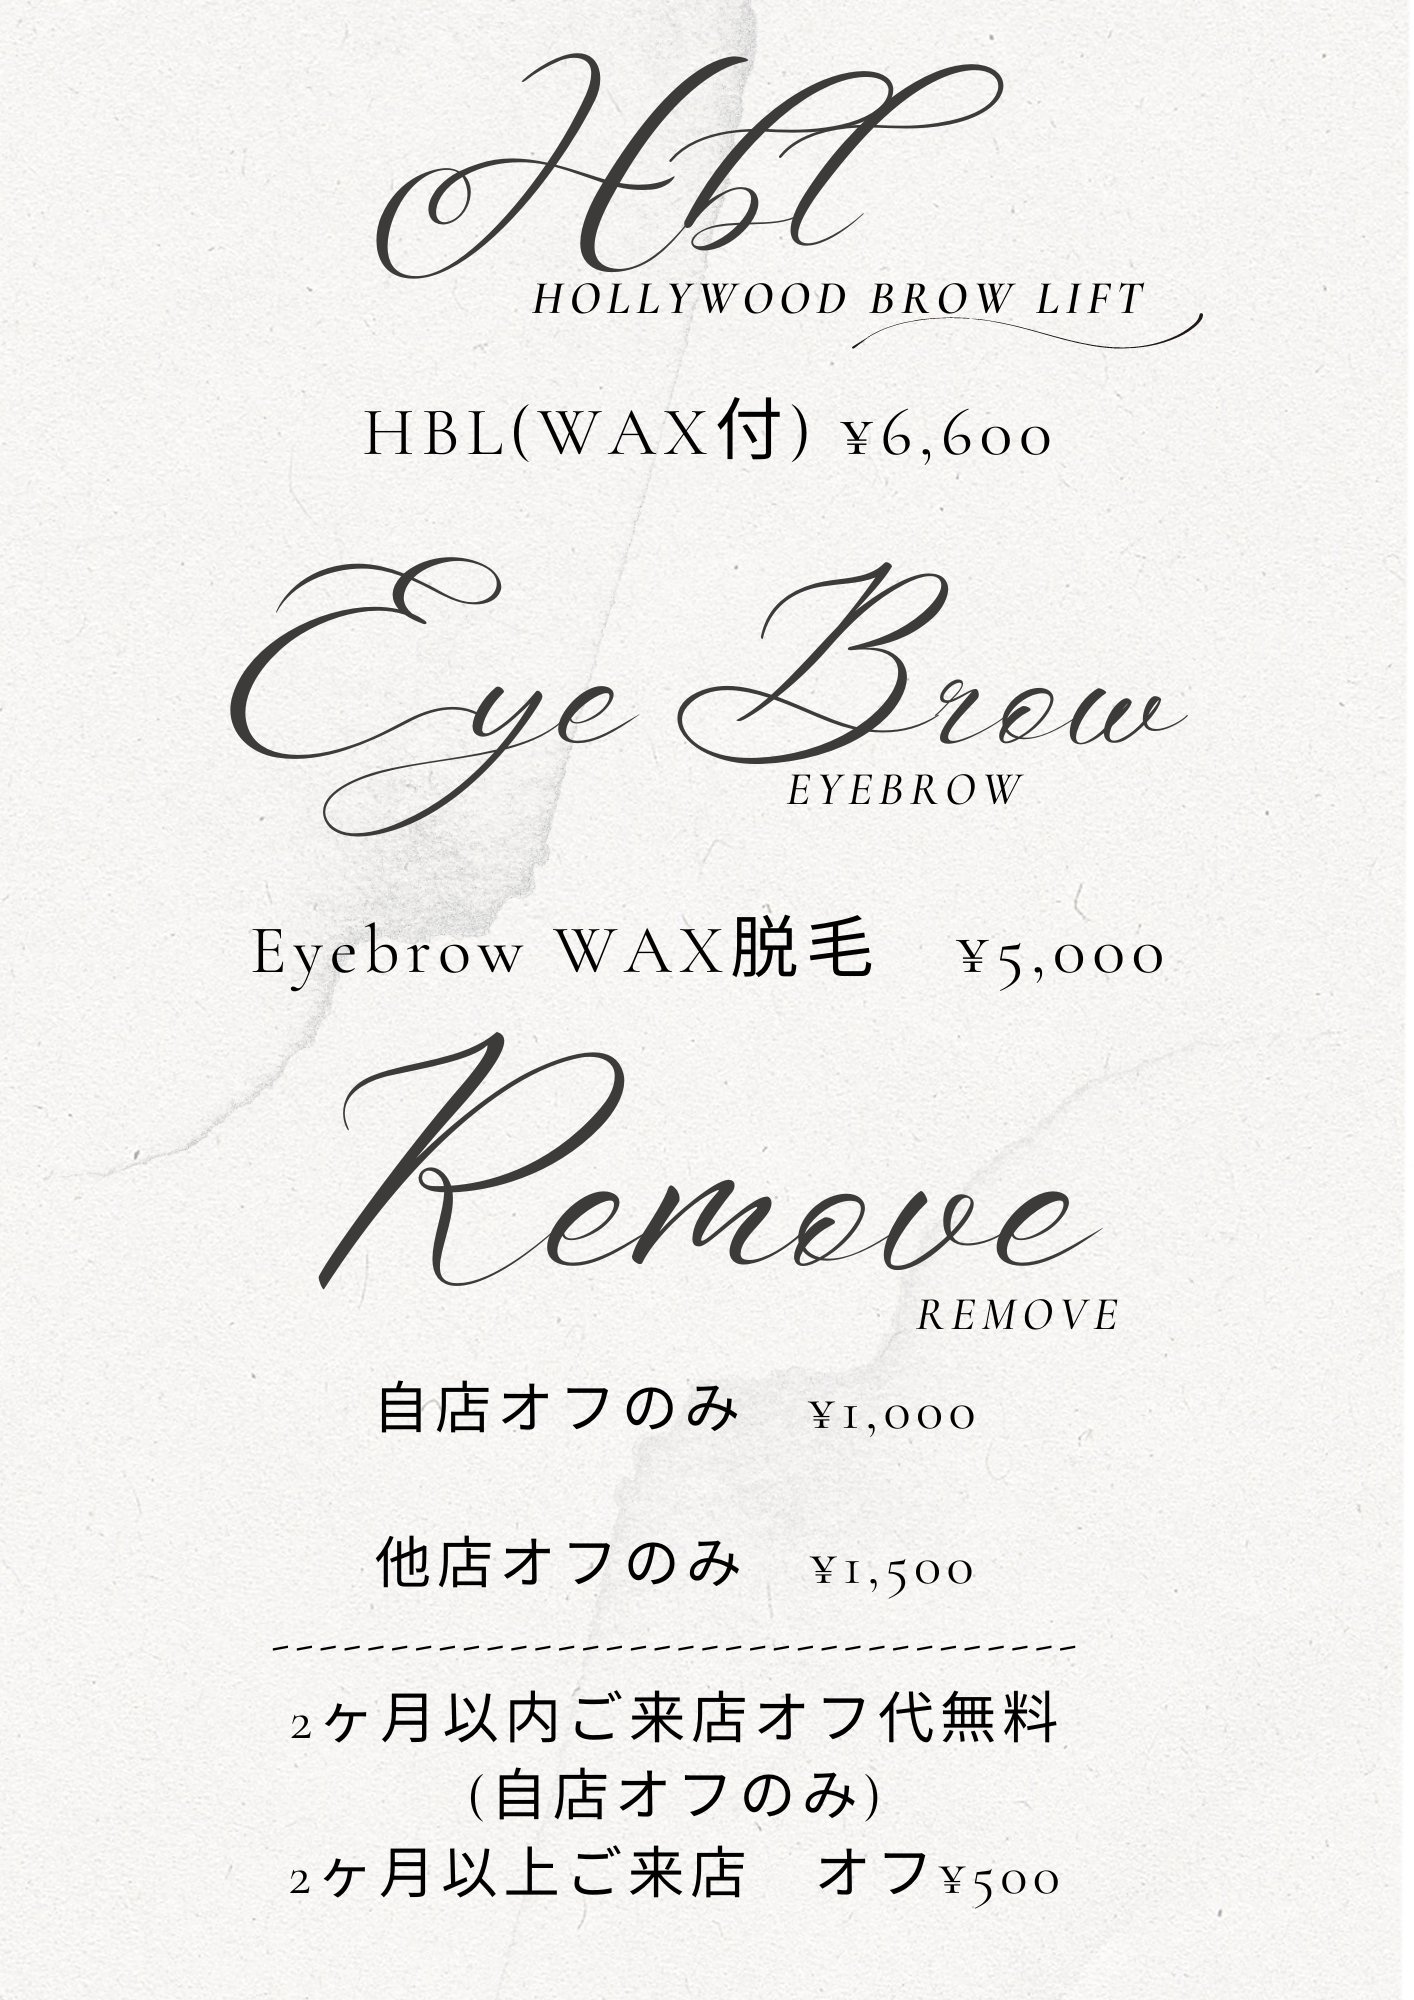 Hbl
HOLLYWOOD BROW LIFT
HBL(WAX付) ¥6,600
Eye Brow
EYEBROW
Eyebrow WAX脱毛　¥5,000
Remove
REMOVE
自店オフのみ　¥1,000
他店オフのみ　¥1,500
2ヶ月以内ご来店オフ代無料
(自店オフのみ)
2ヶ月以上ご来店　オフ¥500